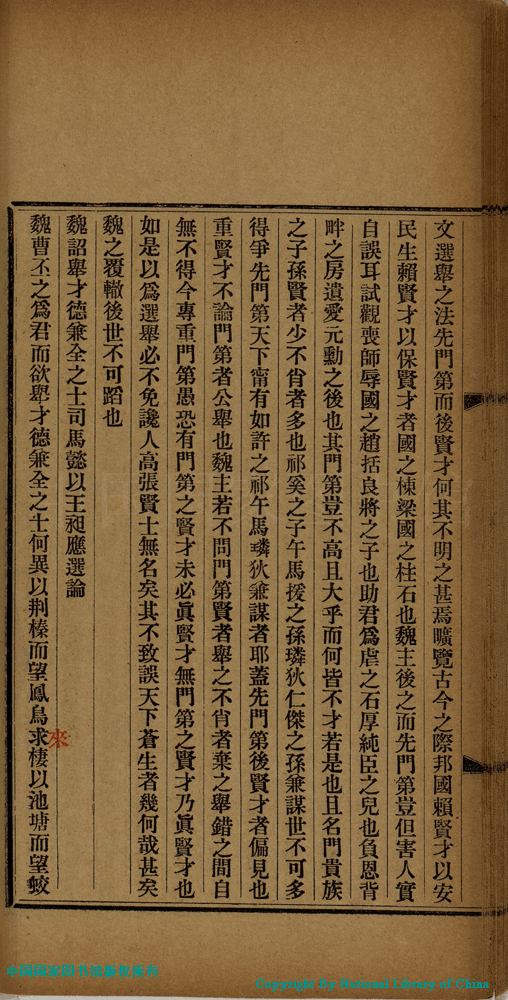 文選舉之法先門第而後賢才何其不明之甚焉曠覽古今之際邦國賴賢才以安
民生賴賢才以保賢才者國之棟梁國之柱石也魏主後之而先門第豈但害人實
自誤耳試觀喪師辱國之趙括良將之子也助君爲虐之石厚純臣之兒也負恩背
畔之房遺愛元勳之後也其門第豈不高且大乎而何皆不才若是也且名門貴族
之子孫賢者少不肖者多也祁奚之子午馬援之孫璘狄仁傑之孫兼謀世不可多
得爭先門第天下甯有如許之祁午馬璘狄兼謀者耶蓋先門第後賢才者偏見也
重賢才不論門第者公舉也魏主若不問門第賢者舉之不肖者棄之舉錯之間自
無不得今專重門第愚恐有門第之賢才未必眞賢才無門第之賢才乃眞賢才也
如是以爲選舉必不免讒人高張賢士無名矣其不致誤天下蒼生者幾何哉甚矣
魏之覆轍後世不可蹈也
魏詔舉才德兼全之士司馬懿以王昶應選論
魏曹丕之爲君而欲舉才德兼全之士何異以荆榛而望鳳鳥求棲以池塘而望蛟
來
中国国家图书馆版权所有
Copyright By National Library of China